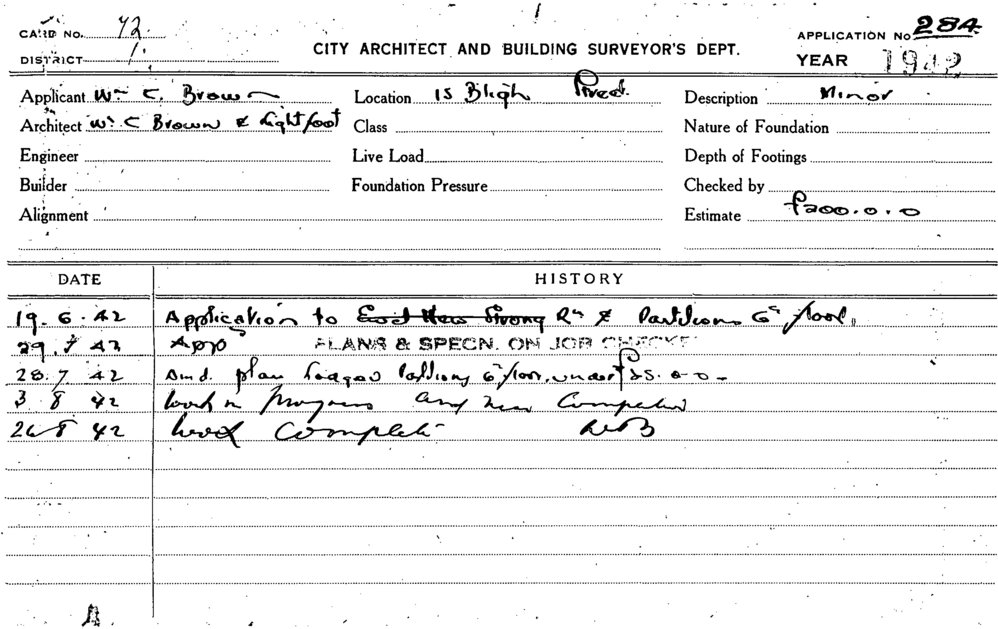 CARD NO. 72. APPLICATION No 284.
DISTRICT 1. CITY ARCHITECT AND BUILDING SURVEYOR'S DEPT. YEAR 1942
Applicant Wm C. Brown Location 15 Bligh Street. Description Minor
Architect Wm C Brown & Lightfoot Class Nature of Foundation
Engineer Live Load Depth of Footings
Builder Foundation Pressure Checked by
Alignment Estimate £200.0.0
DATE HISTORY
19.6.42 Application to Strong Rm & Partitions 6th floor.
29.7.42 App PLANS & SPECN. ON JOB CHECKED
28.7.42 Amd. plan Partitions 6th floor, under £25.0.0
3 8 42 Work in Progress and
26 8 42 Work Complete